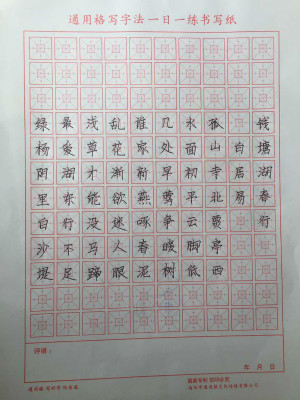 通用格写字法一日一练书写纸
钱塘湖春行
白居易
孤山寺北贾亭西
水面初平云脚低
几处早莺争暖树
谁家新燕啄春泥
乱花渐欲迷人眼
浅草才能没马蹄
最爱湖东行不足
绿杨阴里白沙堤
评语：
年 月 日
国家专利 仿印必究